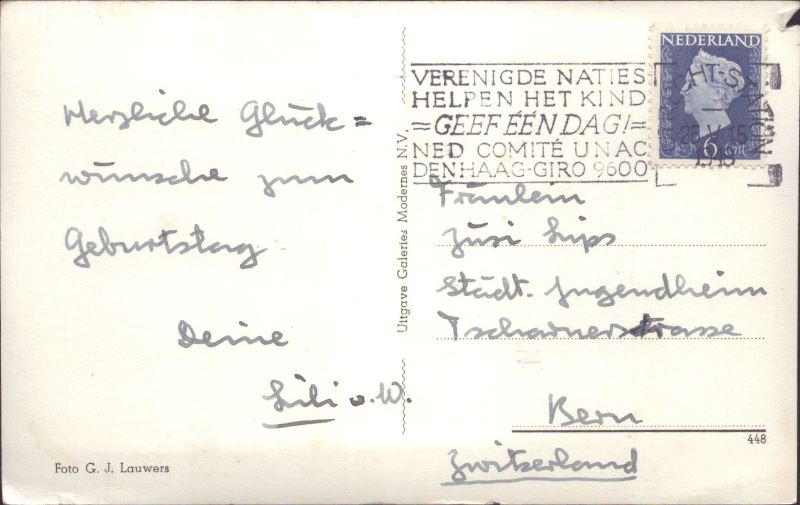 Herzliche Glück=
wünsche zum
Geburtstag
Deine
Lili v. W.
Foto G. J. Lauwers
Uitgave Galeries Modernes N.V.
VERENIGDE NATIES
HELPEN HET KIND
=GEEF ÉÉN DAG!=
NED COMITÉ UNAC
DEN HAAG-GIRO 9600
NEDERLAND
6 cnt
Fräulein
Züsi Lips
Städt. Jugendheim
Tscharnerstrasse
Bern
448
Zwitserland